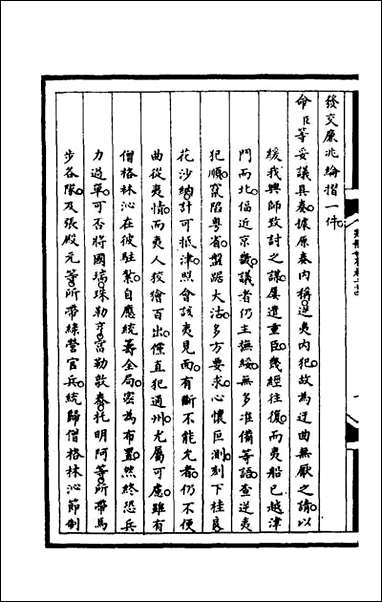 發交廉兆綸摺一件
命臣等妥議具奏據原奏內稱逆夷內犯故為迂曲無厭之請以
緩我興師致討之謀屢遣重臣幾經往復而夷船已越津
門而北偪近京畿議者仍主撫綏無多准備等語查逆夷
犯順窠陷粵省盤踞大沽多方要求心懷叵測刻下桂良
花沙納計可抵津照會該夷見面有斷不能允者仍不便
曲從夷情而夷人狡獪百出儻直犯通州尤屬可慮雖有
僧格林沁在彼駐紮自應統籌全局密為布置然終恐兵
力過單可否將國瑞珠勒亨富勒敦泰托明阿等所帶馬
步各隊及張殿元等所帶綠營官兵統歸僧格林沁節制